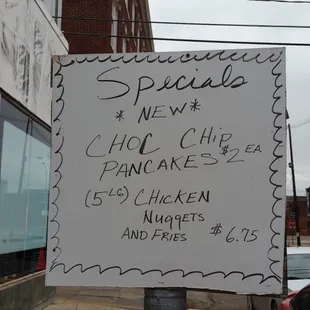 Specials
*NEW*
CHOC CHIP
PANCAKES $2 EA
(5 LG) CHICKEN
NuggETS
AND FRIES $6.75